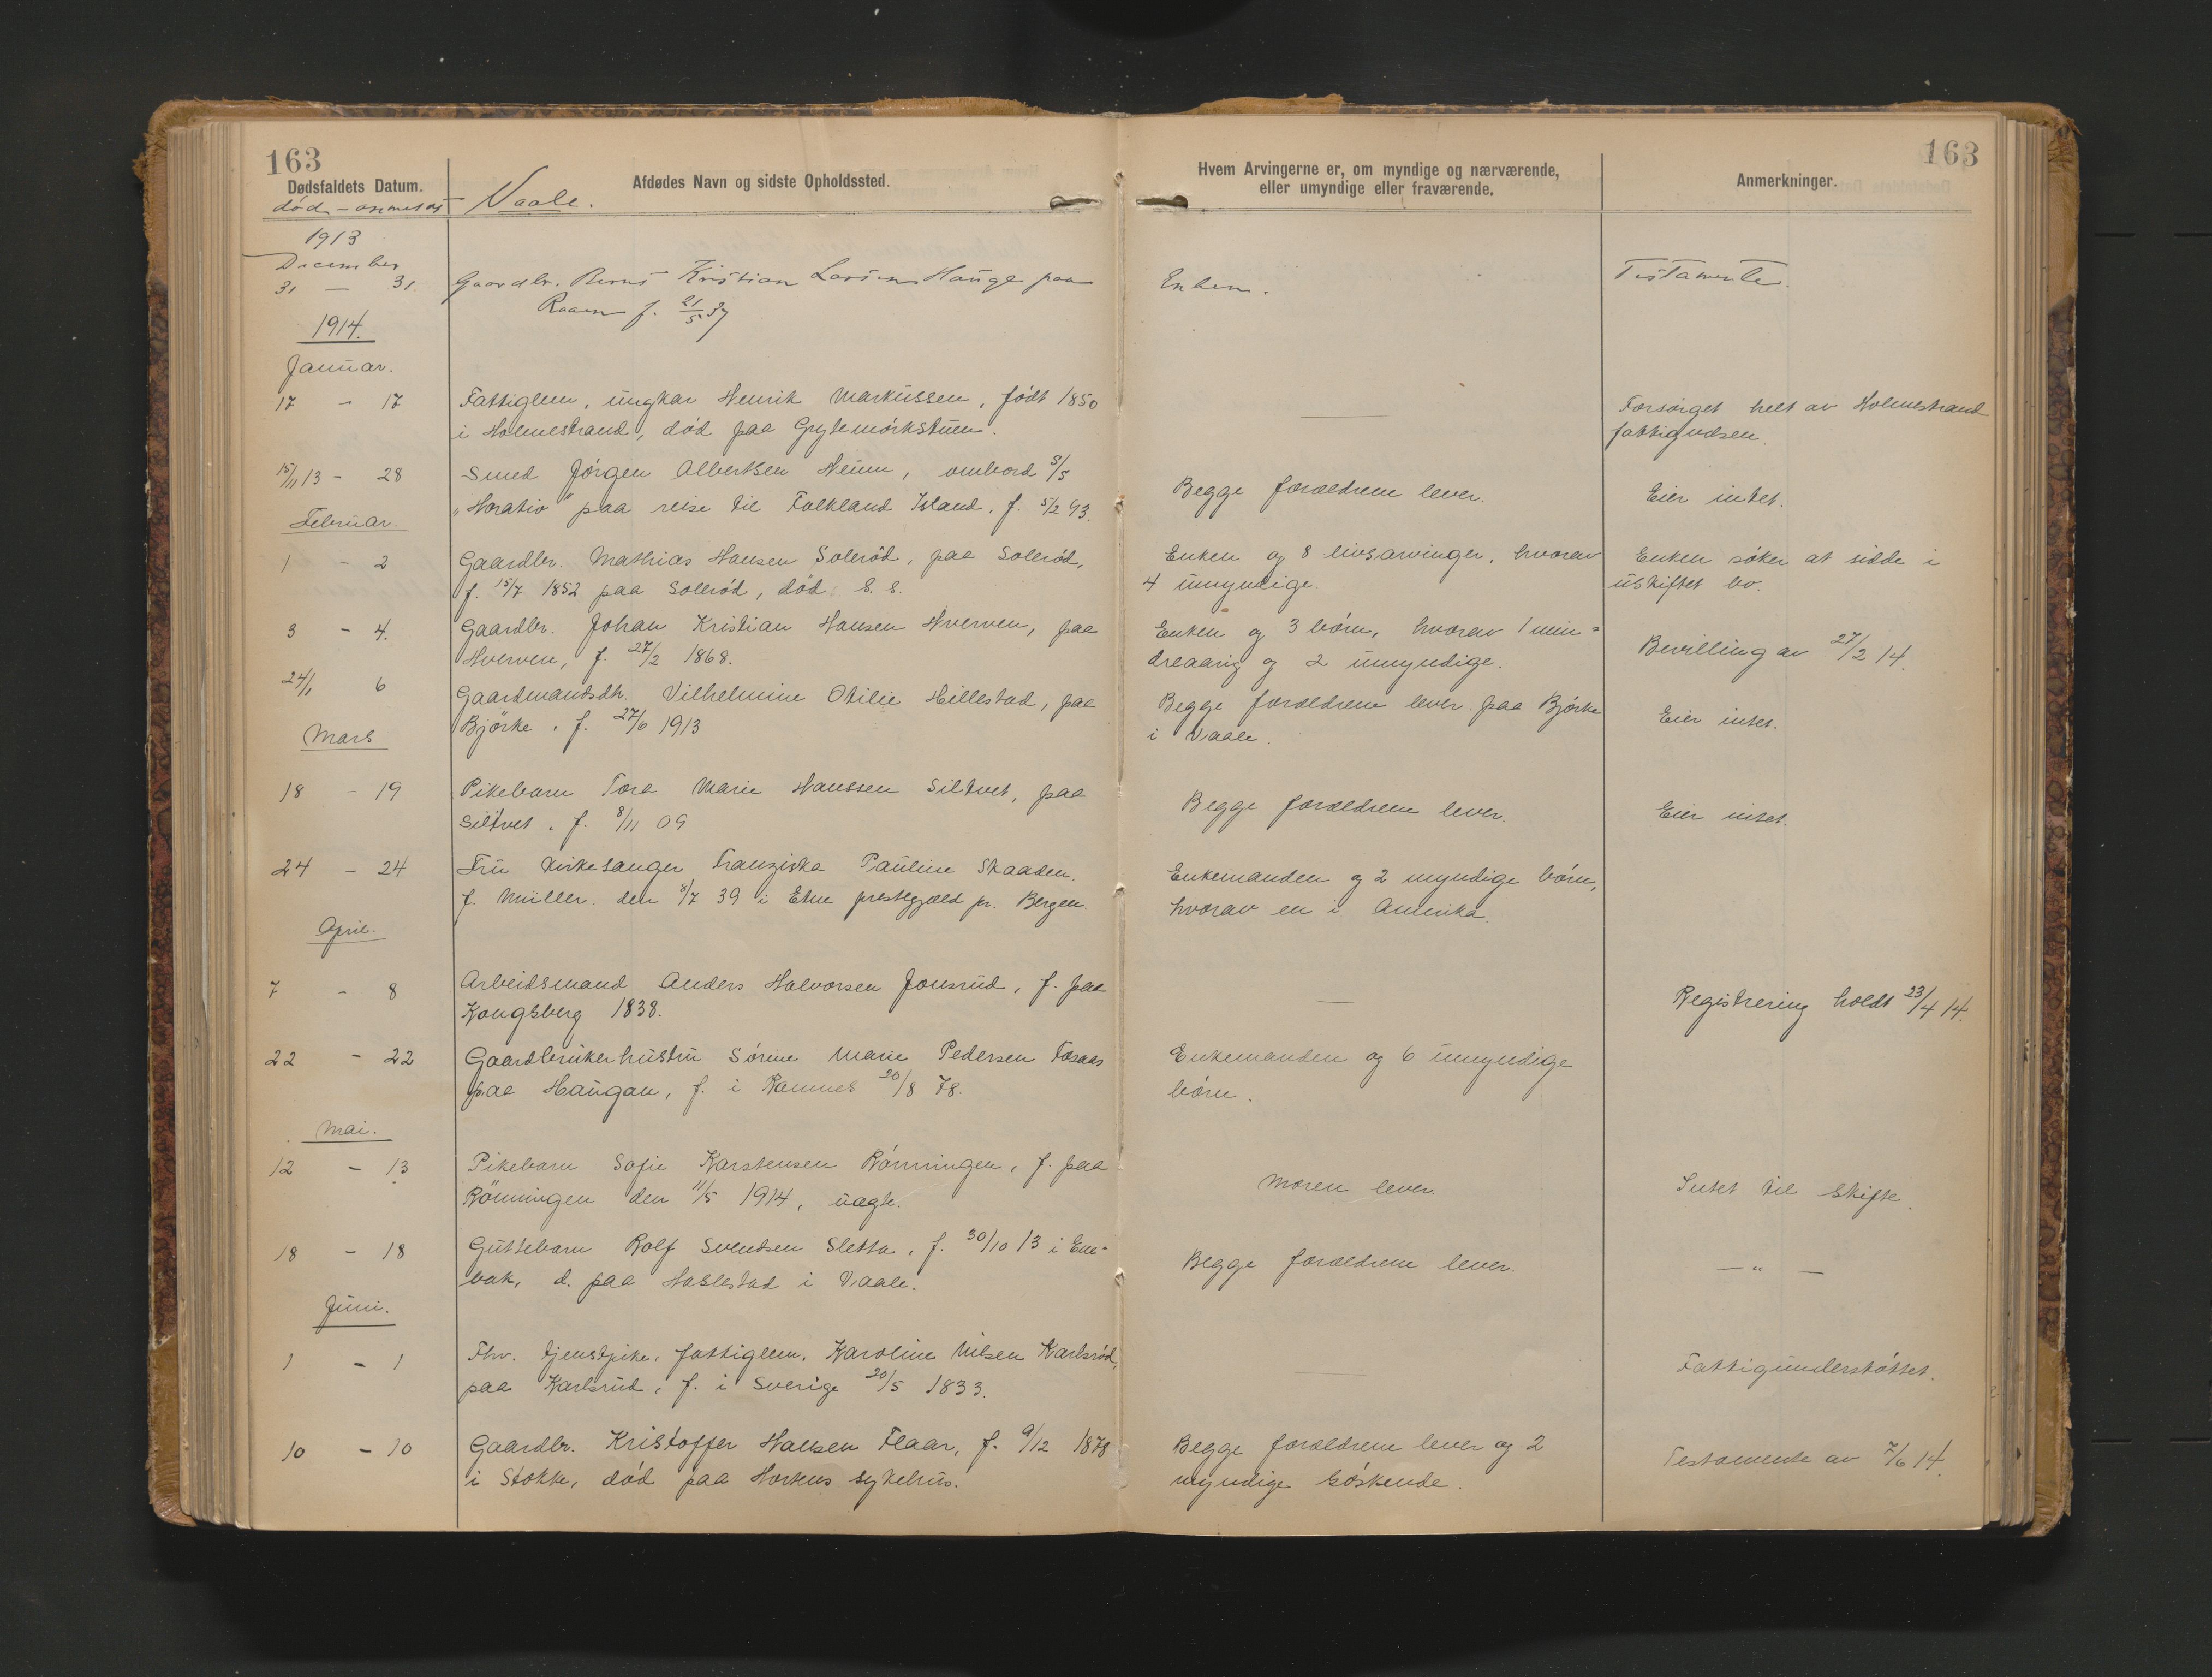 163
163
Dødsfaldets Datum.
Afdødes Navn og sidste Opholdssted.
Hvem Arvingerne er, om myndige og nærværende,
eller umyndige eller fraværende.
Anmerkninger.
død - anmeldt
Vaale.
1913
December
31 — 31.
Gaardbr. Bernt Kristian Larsen Hauge paa
Raaen f. 21/5 37
Enken.
Testamente.
1914.
Januar.
17 - 17
Fattiglem, ungkar Henrik Markussen, født 1850
i Holmestrand, død paa Grytemørkstuen.
———
Forsørget helt av Holmestrand
fattigvæsen.
15/11 13 - 28
Smed Jørgen Albertsen Heum, ombord S/S
„Horatio" paa reise til Falkland Island, f. 5/2 93.
Begge forældrene lever.
Eier intet.
Februar.
1 - 2
Gaardbr. Mathias Hansen Solerød, paa Solerød,
f. 15/7 1852 paa Solerød, død s. s.
Enken og 8 livsarvinger, hvorav
4 umyndige.
Enken søker at sidde i
uskiftet bo.
3 - 4.
Gaardbr. Johan Kristian Hansen Hverven, paa
Hverven, f. 27/2 1868.
Enken og 3 børn, hvorav 1 min=
dreaarig og 2 umyndige.
Bevilling av 27/2 14.
24/1 6
Gaardmandsdtr. Vilhelmine Otilie Hillestad, paa
Bjørke, f. 27/6 1913
Begge forældrene lever paa Bjørke
i Vaale.
Eier intet.
Mars
18 - 19
Pikebarn Tora Marie Hanssen Siltvet, paa
Siltvet, f. 8/11 09
Begge forældrene lever.
Eier intet.
24 - 24
Fru kirkesanger Franziska Pauline Skaaden,
f. Müller. den 8/7 39 i Etne prestegjæld pr. Bergen.
Enkemanden og 2 myndige børn,
hvorav en i Amerika.
April.
7 - 8
Arbeidsmand Anders Halvorsen Jonsrud, f. paa
Kongsberg 1838.
—
Registrering holdt 23/4 14.
22 - 22
Gaardbrukerhustru Sørine Marie Pedersen Fosaas
paa Haugan, f. i Ramnes 20/8 78.
Enkemanden og 6 umyndige
børn.
Mai.
12 - 13
Pikebarn Sofie Karstensen Rønningen, f. paa
Rønningen den 11/5 1914, uægte.
Moren lever.
Intet til skifte.
18 - 18
Guttebarn Rolf Svendsen Sletta, f. 30/10 13 i Ene=
bak, d. paa Haslestad i Vaale.
Begge forældrene lever.
— " —
Juni.
1 - 1
Fhv. tjenestpike, fattiglem, Karoline Nilsen Karlsrød,
paa Karlsrud, f. i Sverige 20/5 1833.
——
Fattigunderstøttet.
10 - 10
Gaardbr. Kristoffer Hansen Flaar, f. 9/12 1878
i Stokke, død paa Hortens sykehus.
Begge forældrene lever og 2
myndige søskende.
Testamente av 7/6 14.